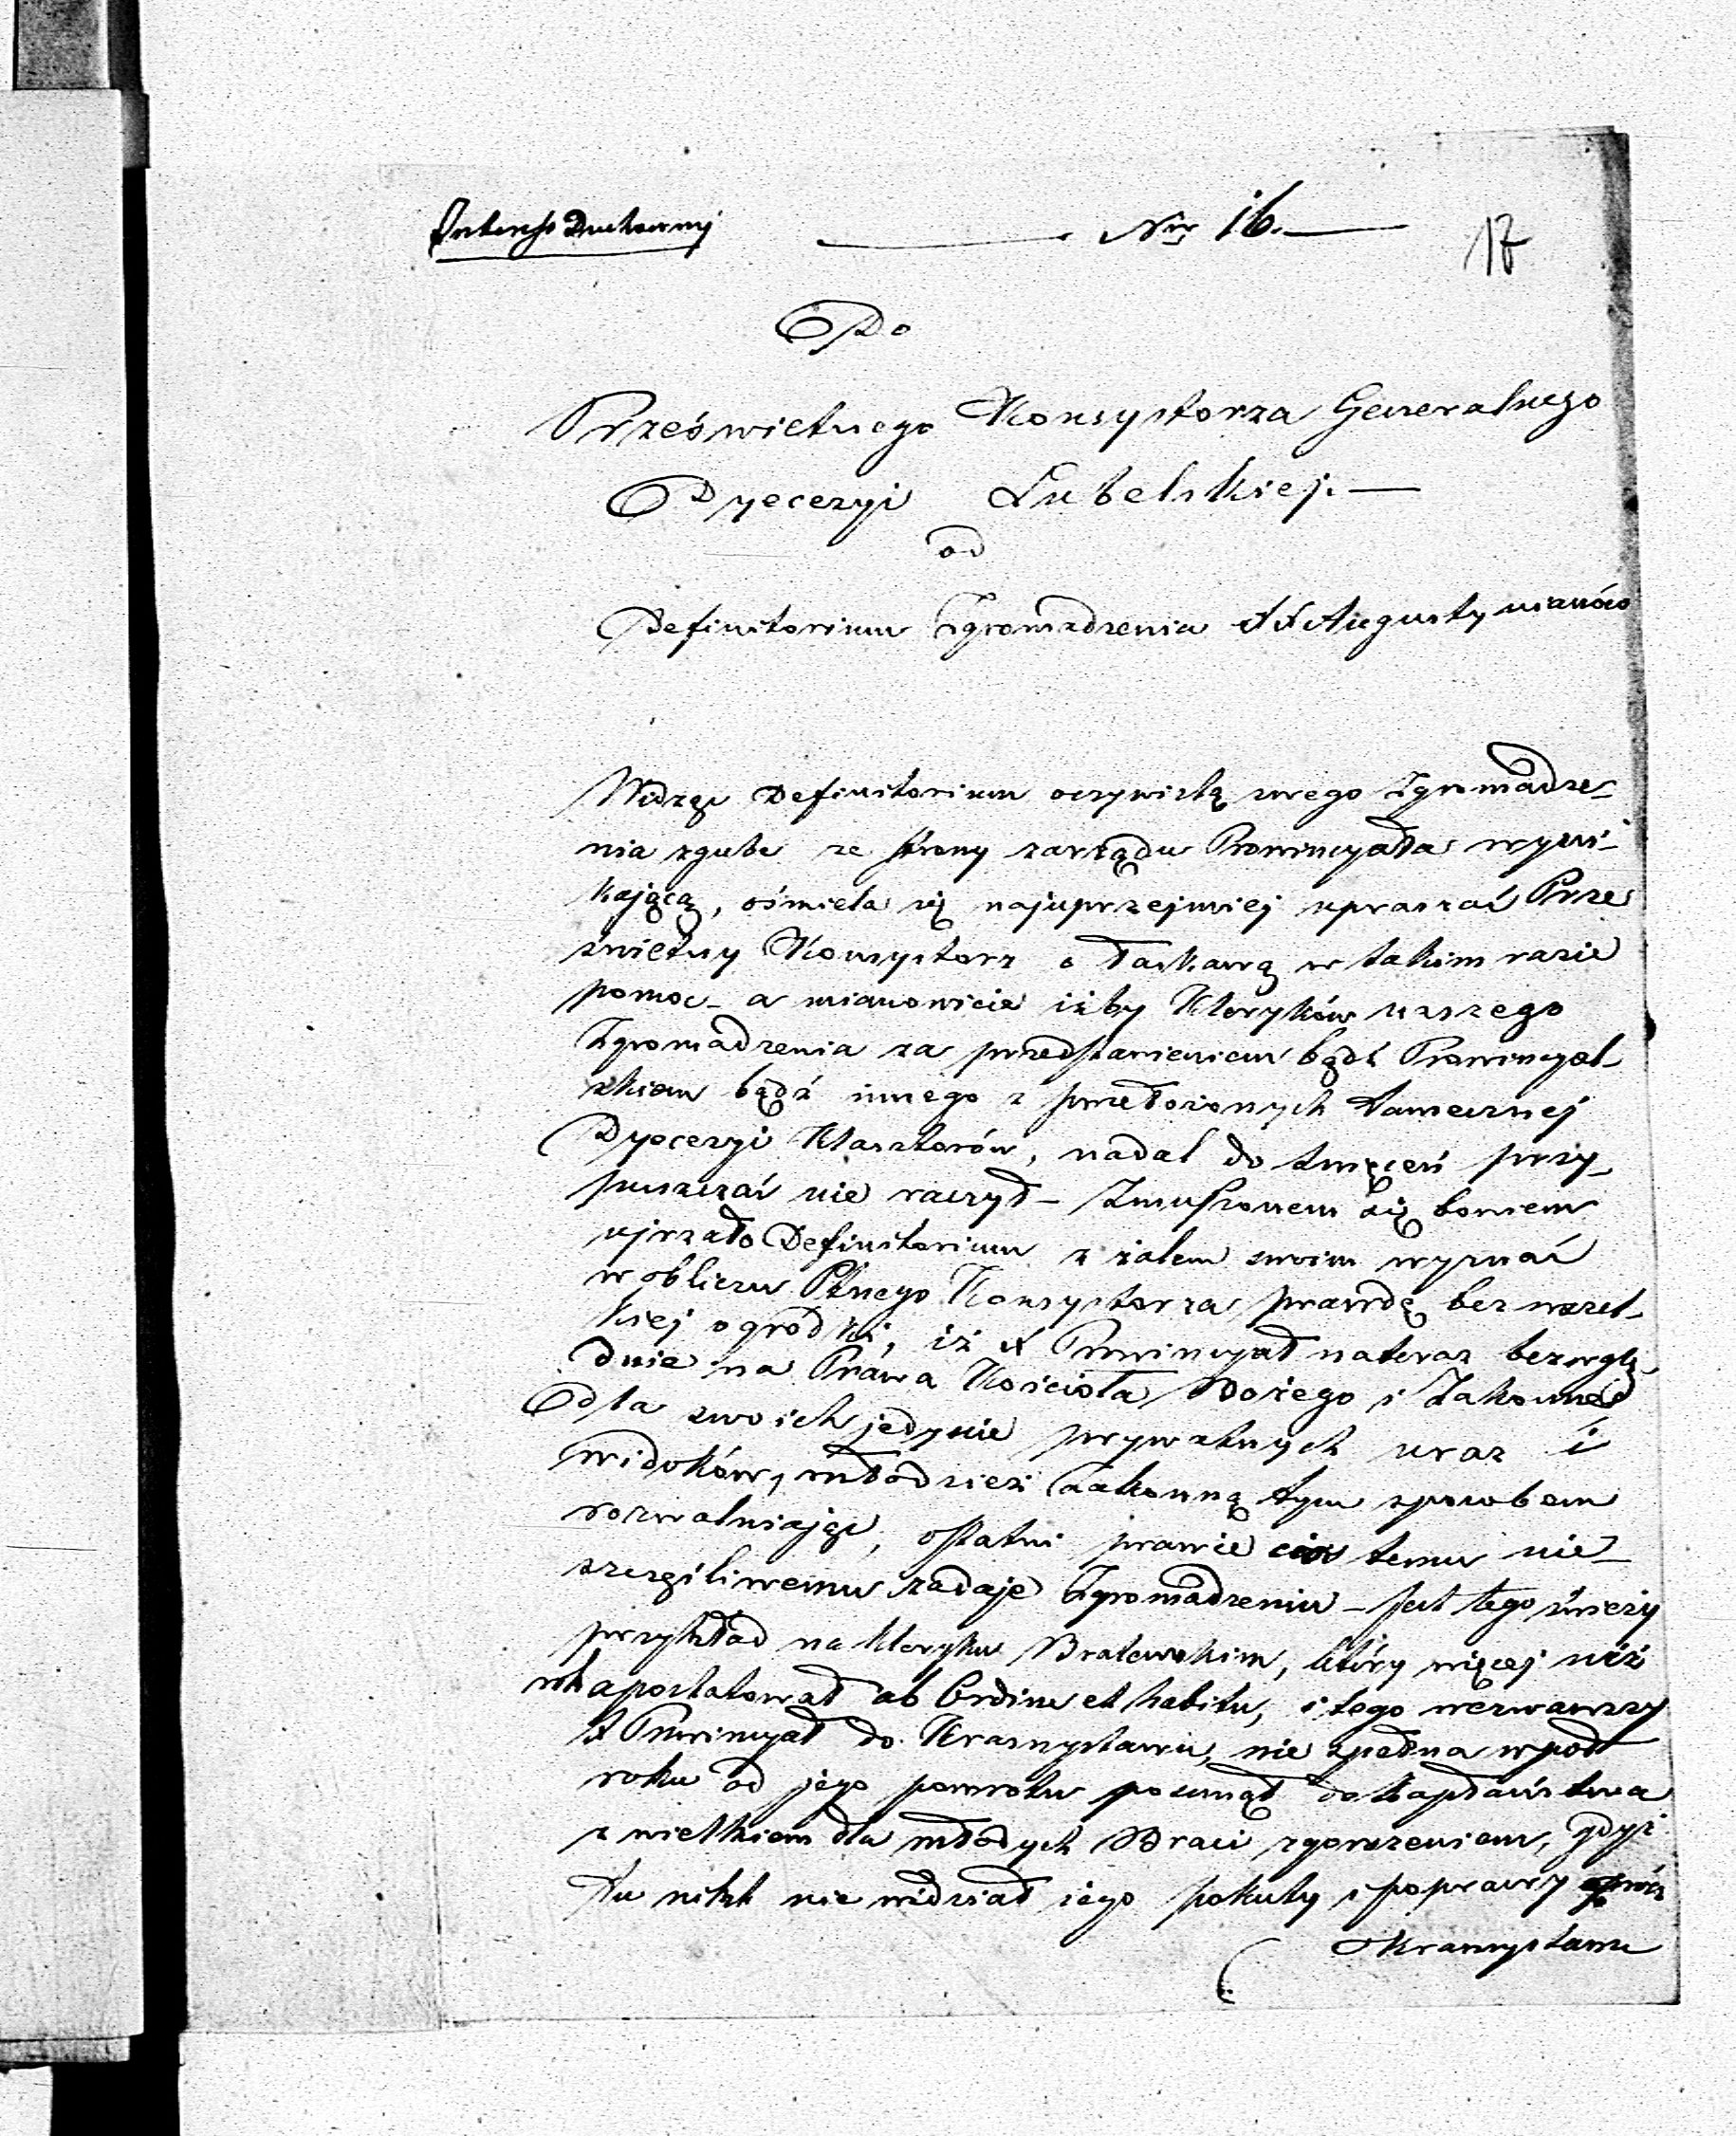 Interess Duchowny
Nro 16.
17
Do
Prześwietnego Konsystorza Generalnego
Dyecezyi Lubelskiej. —
od
Definitorium Zgromadzenia XX Augustynianów
Widząc Definitorium oczywistą swego Zgromadze-
nia zgubę ze strony zarządu Prowincyała wyni-
kającą, ośmiela się najuprzejmiej upraszać Prze
świetny Konsystorz o łaskawą w takim razie
pomoc - a mianowicie iżby Kleryków naszego
Zgromadzenia za przedstawieniem bądź Prowincyal-
skiem bądź innego z przełożonych tamecznej
Dyecezyi Klasztorów, nadal do święceń przy-
puszczać nie raczył - Zmuszonem się bowiem
ujrzało Definitorium z żalem swoim wyznać
w obliczu Pśtnego Konsystorza prawdę bez wszel-
kiej ogródki, iż X Prowincyał nateraz bezwglę-
dnie na Prawa Kościoła Bożego i Zakonne
dla swoich jedynie prywatnych uraz i
widoków, młódzież zakonną tym sposobem
rozwalniając, ostatni prawie cios temu nie-
szczęśliwemu zadaje Zgromadzeniu - Jest tego świeży
przykład na kleryku Bratewskim, który więcej niż
rok apostatował ab Ordine et habitu, i tego wezwawszy
X Prowincyał do Krasnystawu, nie spełna wpół
roku od jego powrotu posunął do kapłaństwa
z wielkiem dla młódych Braci zgorszeniem, gdyż
tu nikt nie widział jego pokuty i poprawy oprócz
Krasnystawu